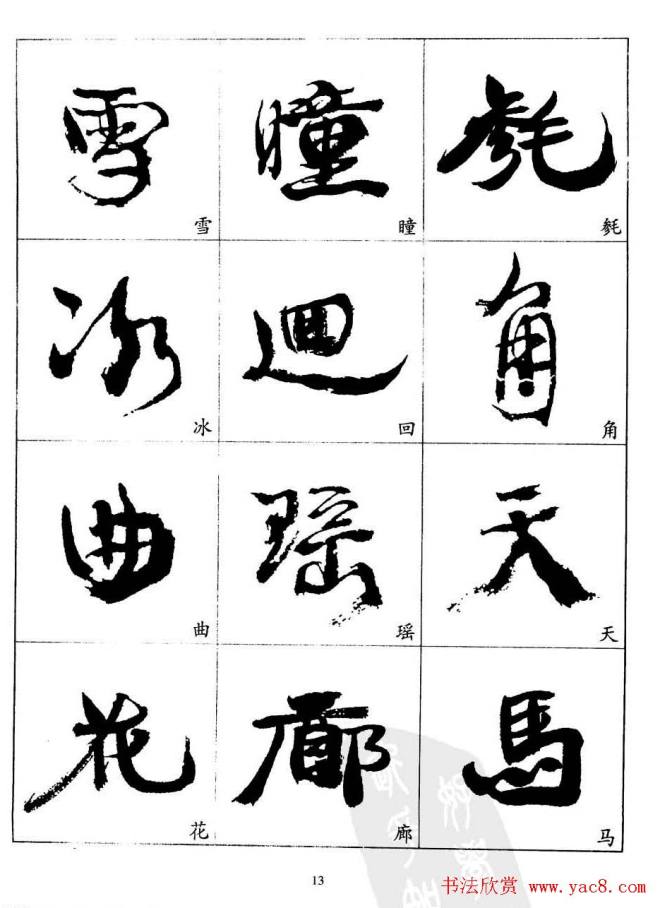 雪 瞳
雪 瞳
冰 迴 角
冰 回 角
曲 瑶 天
曲 瑶 天
花 廊 馬
花 廊 马
13
书法欣赏 www.yac8.com